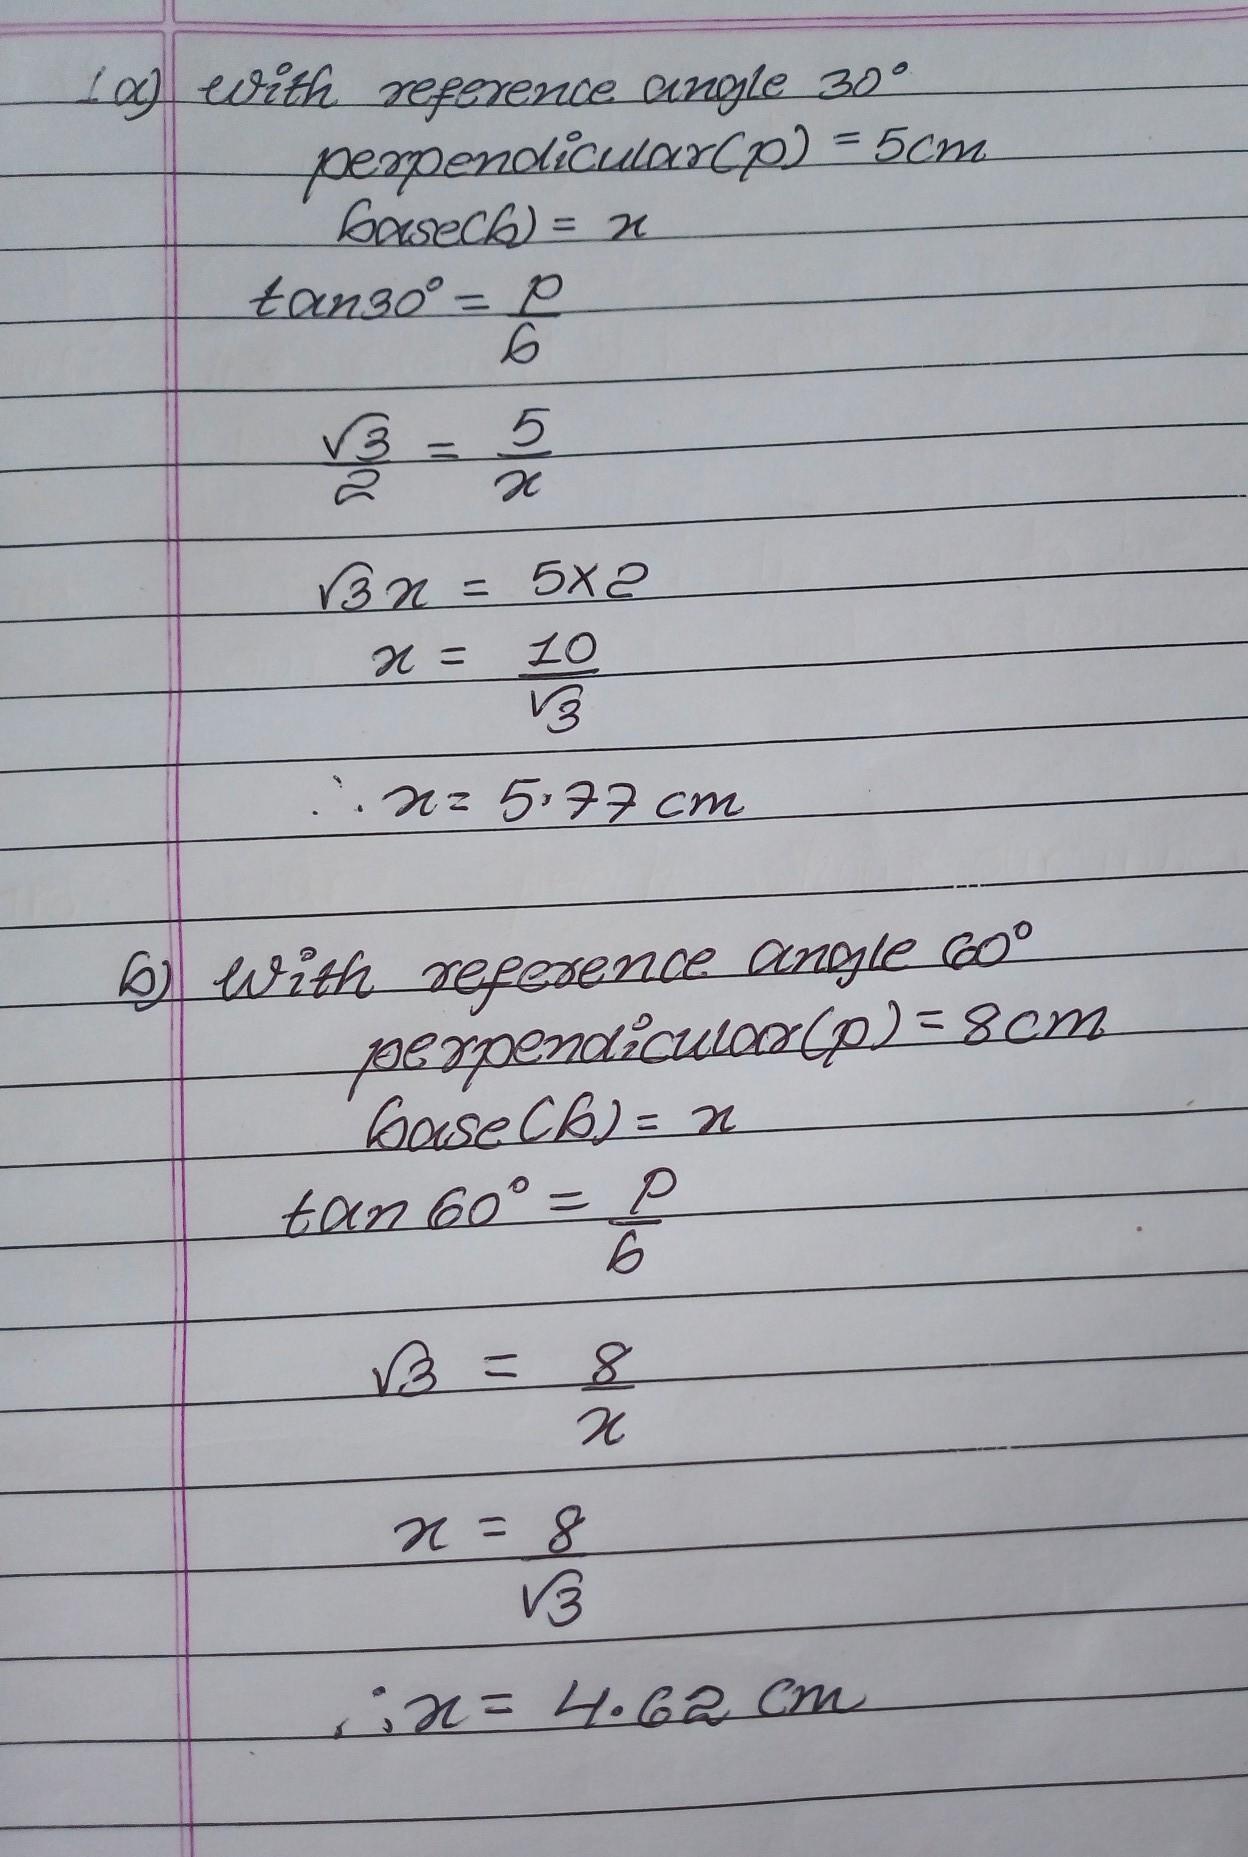 1a) With reference angle 30°
perpendicular(p) = 5cm
base(b) = x
tan30° = p/b
√3/2 = 5/x
√3x = 5×2
x = 10/√3
∴ x = 5.77 cm
b) With reference angle 60°
perpendicular(p) = 8cm
base(b) = x
tan 60° = p/b
√3 = 8/x
x = 8/√3
∴ x = 4.62 cm